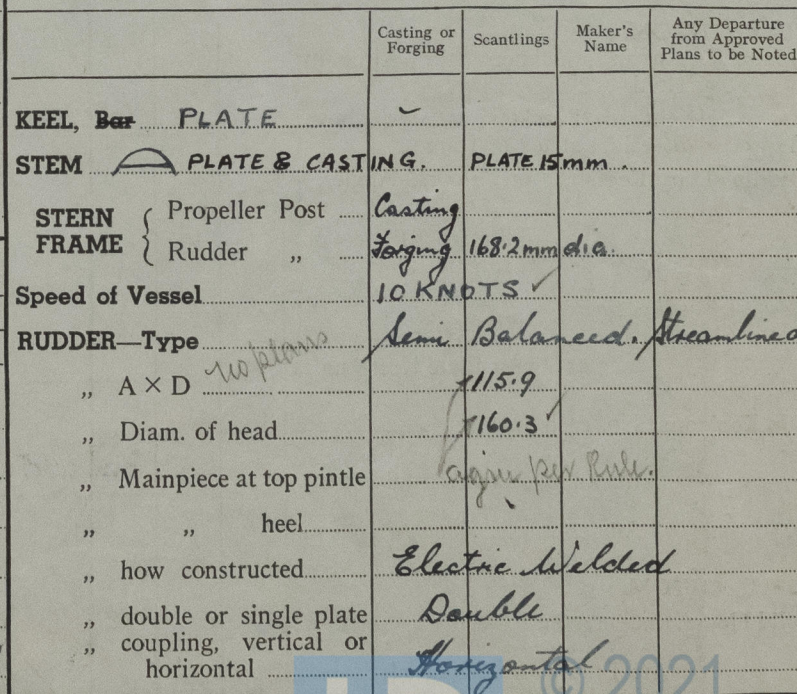 Casting or Forging Scantlings Maker's Name Any Departure from Approved Plans to be Noted
KEEL, Bar PLATE
STEM PLATE & CASTING. PLATE 15mm.
STERN FRAME { Propeller Post Casting
Rudder „ Forging 168.2mm dia.
Speed of Vessel 10 KNOTS ✓
RUDDER—Type Semi Balanced. Streamlined
no plans
„ A × D 115.9
„ Diam. of head 160.3 ✓
„ Mainpiece at top pintle per Rule.
„ „ heel
„ how constructed Electric Welded
„ double or single plate Double
„ coupling, vertical or
horizontal Horizontal
© 2021